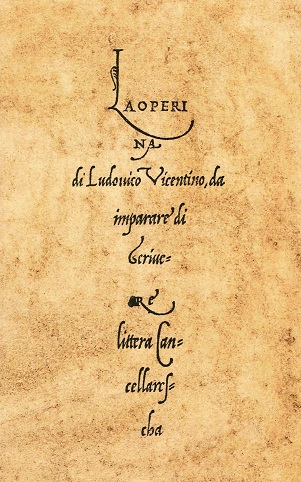 LAOPERI
NA
di Ludouico Vicentino, da
imparare di
scriue=
RE
littera Can=
cellares=
cha